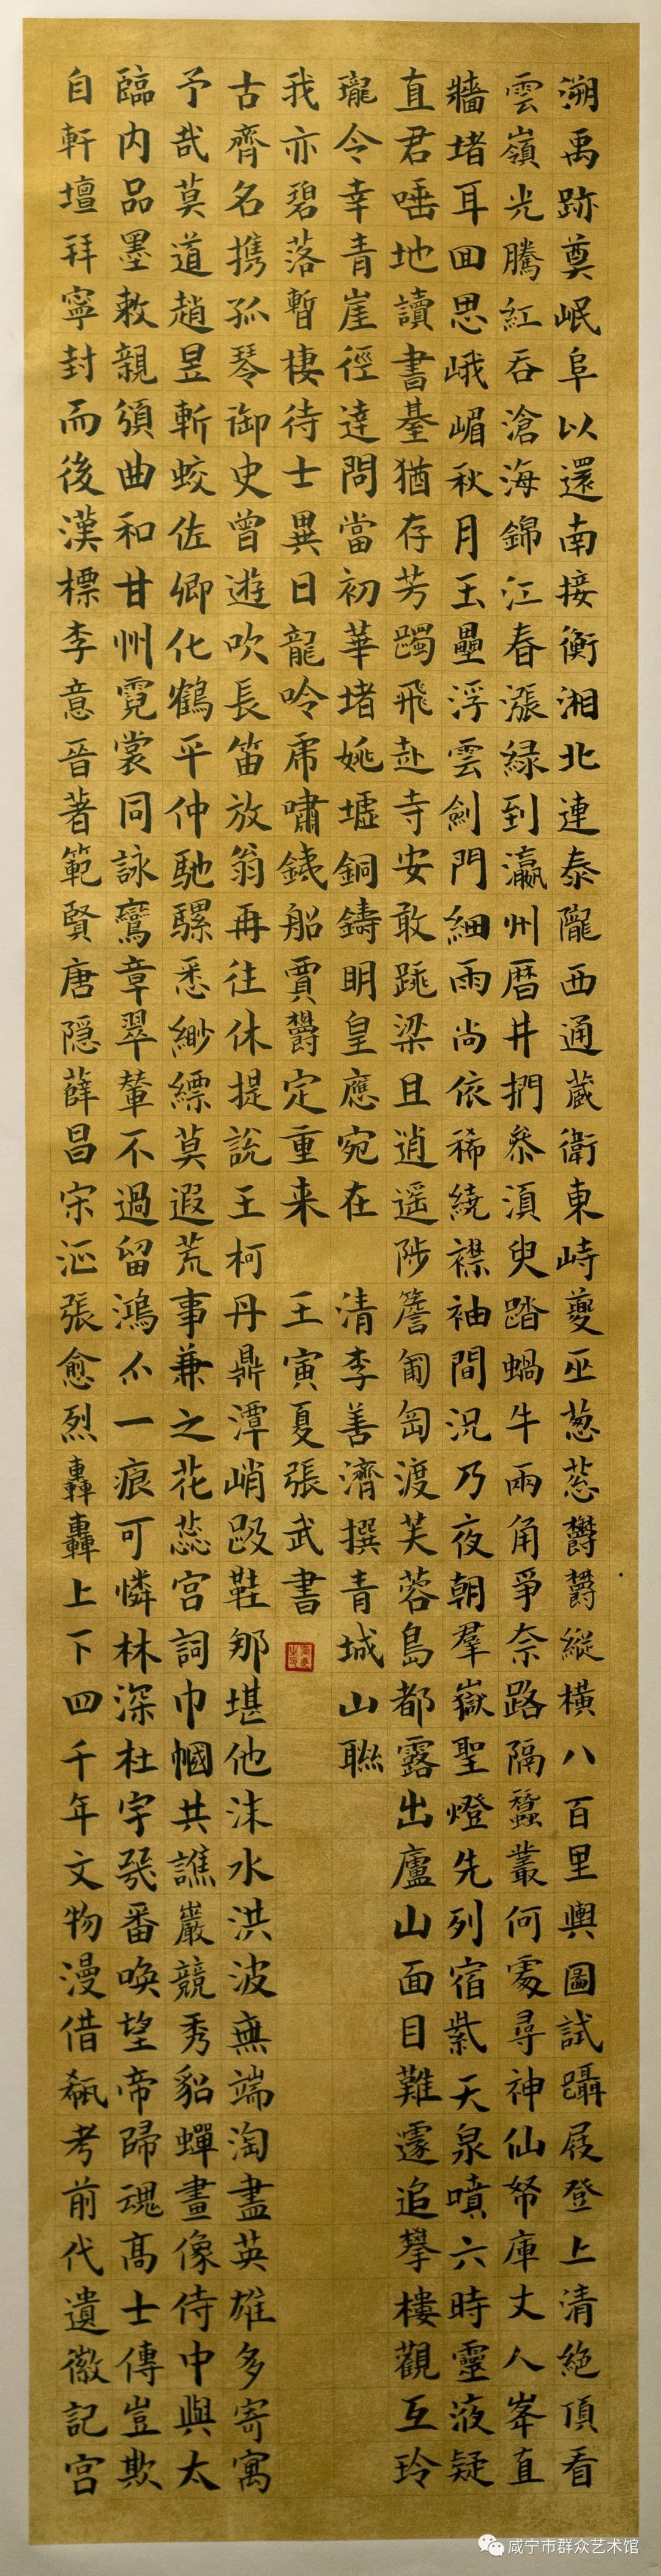 溯禹跡奠岷阜以還南接衡湘北連泰隴西通藏衛東峙夔巫葱葱欝欝縱橫八百里輿圖試躡屐登上清絶頂看
雲嶺光騰紅吞滄海錦江春漲緑到瀛州曆井捫參須臾踏蝸牛兩角爭奈路隔蠶叢何處尋神仙帑庫丈人峯直
牆堵耳囬思峨嵋秋月玉壘浮雲劍門細雨尚依稀繞襟袖間況乃夜朝羣嶽聖燈先列宿紫天泉噴六時靈液疑
直君唾地讀書臺猶存芳躅飛赴寺安敢跳梁且逍遥陟簷匍匐渡芙蓉島都露出廬山面目難遽追攀樓觀互玲
瓏令幸青崖徑達問當初華堵姚墟銅鑄明皇應宛在
自軒壇拜寧封而後漢標李意晉著範賢唐隐薛昌宋沤張愈烈轟轟上下四千年文物漫借瓻考前代遺徽記宮
臨内品墨敕親頒曲和甘州霓裳同詠鸞章翠輦不過留鴻爪一痕可憐林深杜宇幾番喚望帝歸魂高士傳豈欺
予哉莫道趙昱斬蛟佐卿化鶴平仲馳騾悉緲縹莫遐荒事兼之花蕊宮詞巾幗共譙巖競秀貂蟬畫像侍中與太
古齊名携孤琴御史曾遊吹長笛放翁再往休提說王柯丹鼎潭峭趿鞋那堪他沫水洪波無端淘盡英雄多寄寓
我亦碧落暫棲待士異日龍吟虎嘯鋨船賈欝定重来
清李善濟撰青城山聯
王寅夏張武書
咸宁市群众艺术馆